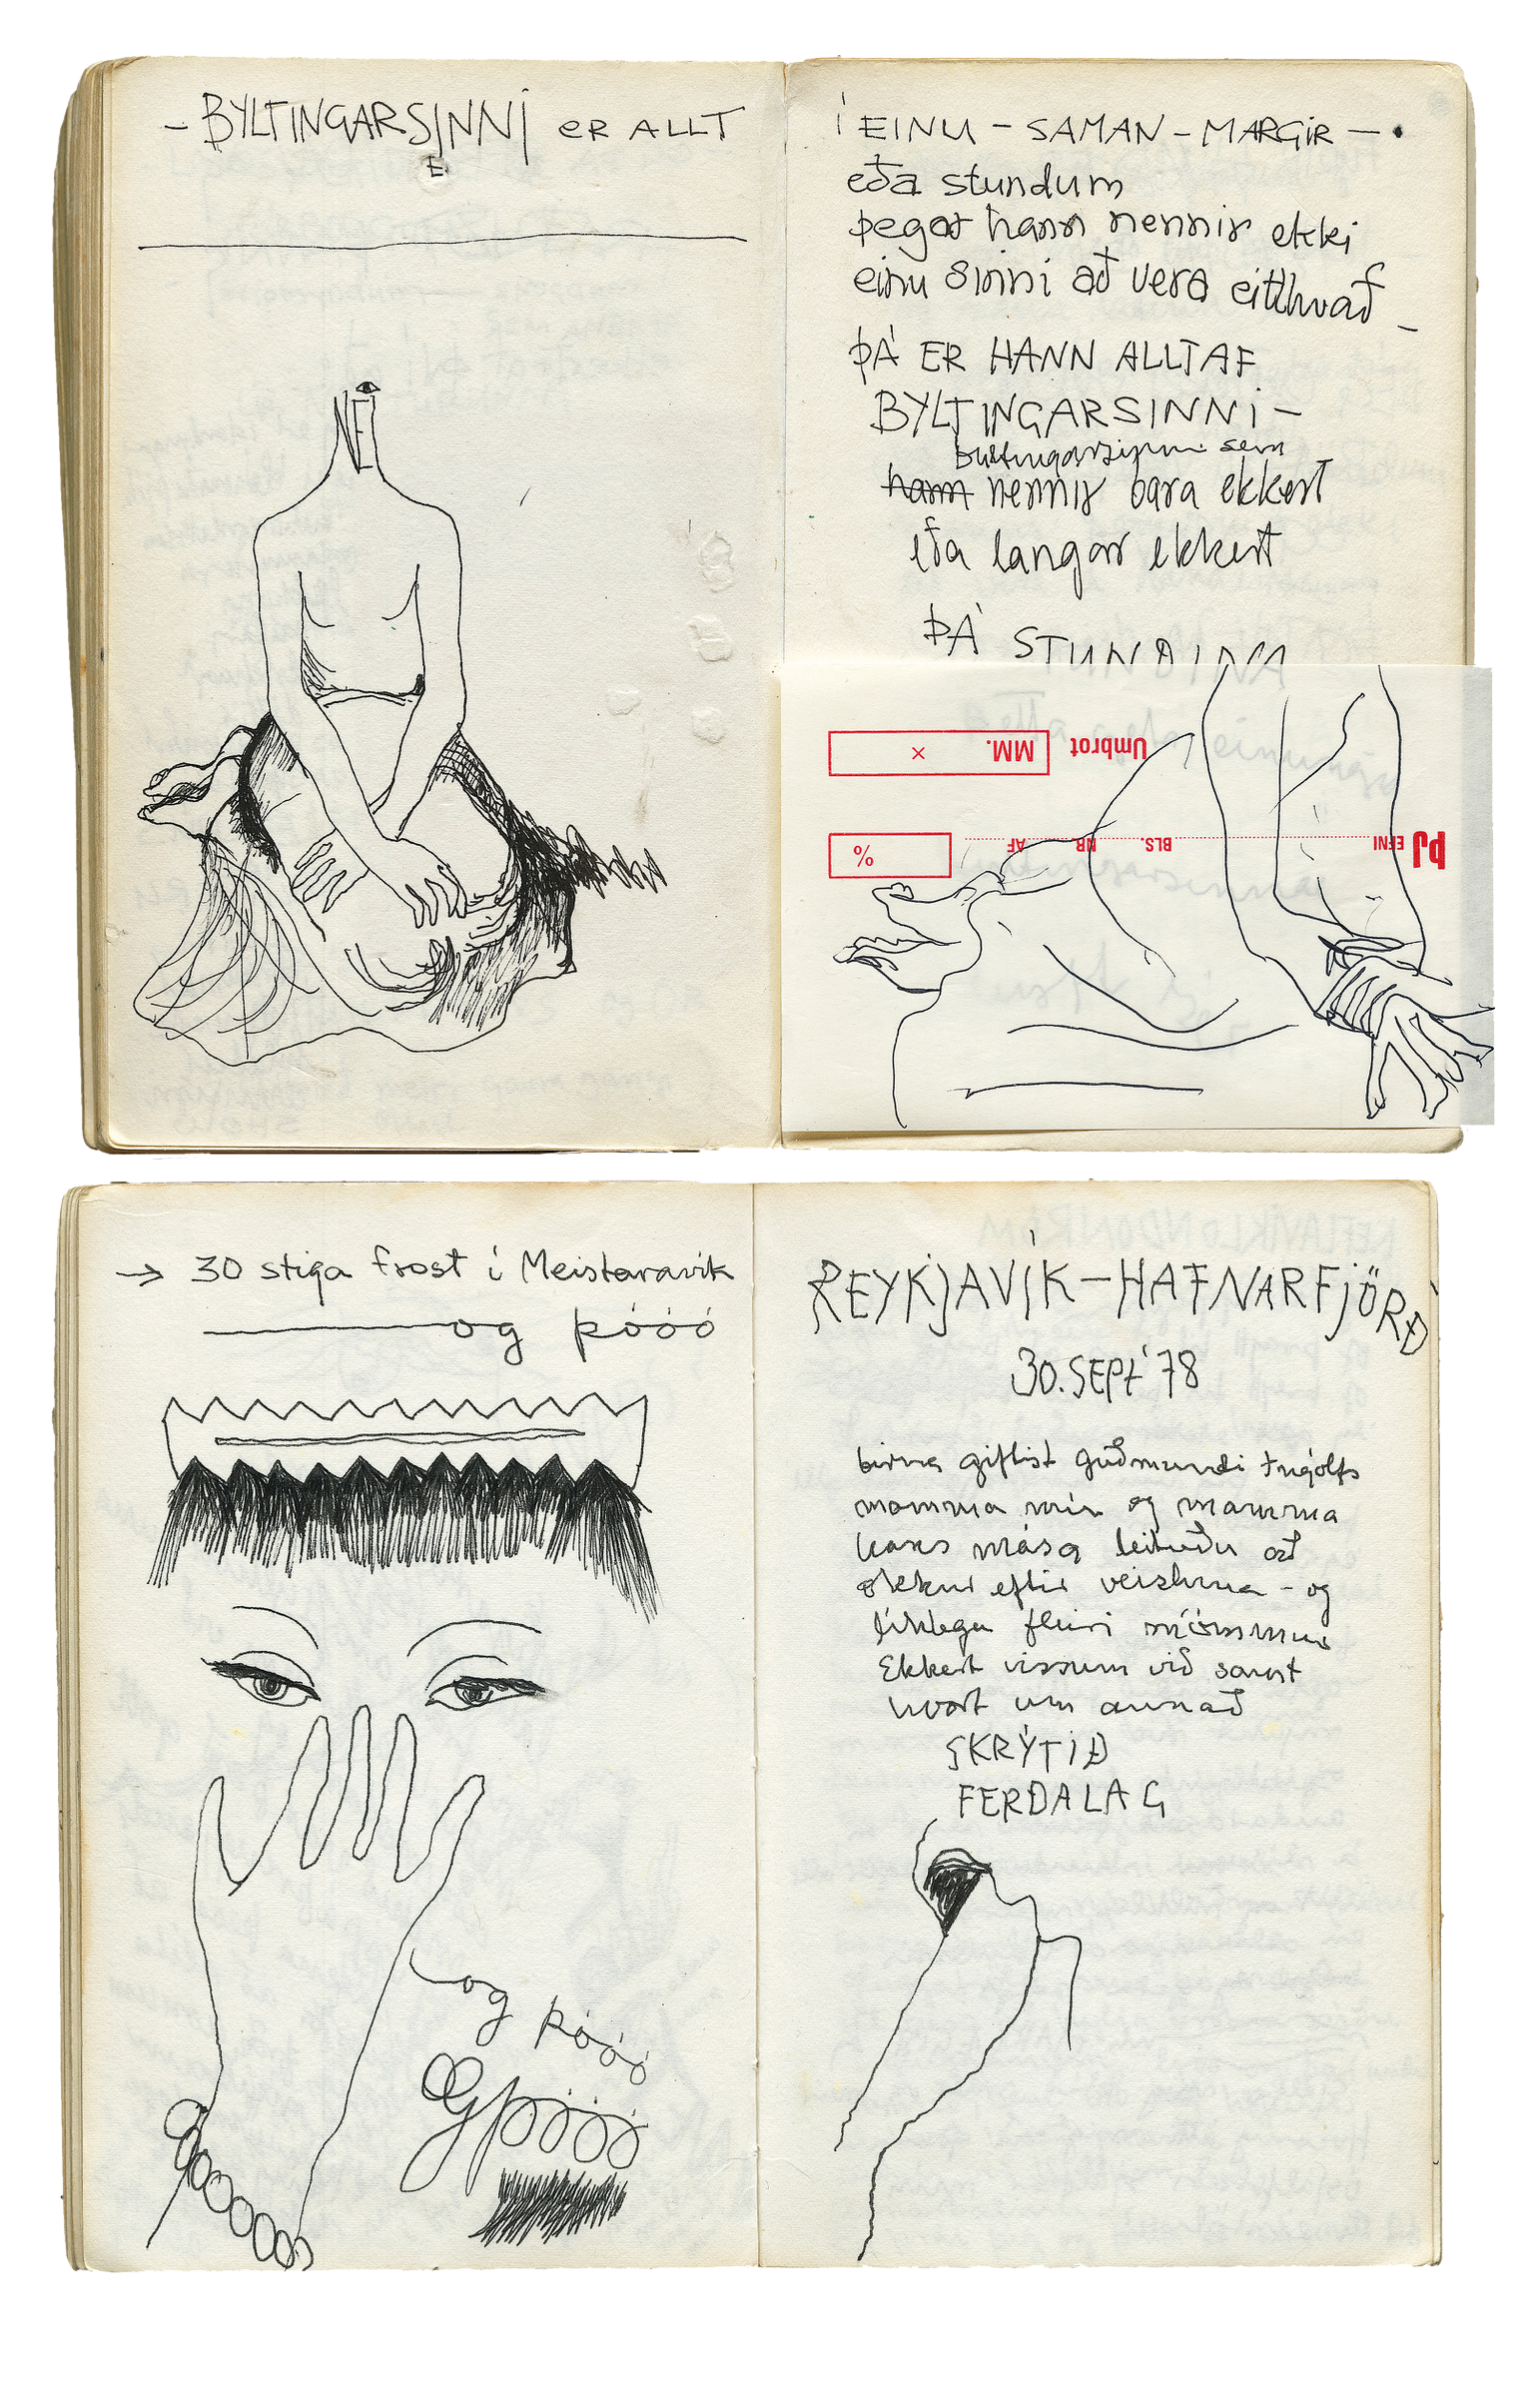 – BYLTINGARSINNI ER ALLT
E
NEI
Í EINU – SAMAN – MARGIR – •
eða stundum
þegar hann nennir ekki
einu sinni að vera eitthvað –
ÞÁ ER HANN ALLTAF
BYLTINGARSINNI –
byltingarsinni sem
hann nennir bara ekkert
eða langar ekkert
ÞÁ STUNDINA
Umbrot MM. ×
ÞJ EFNI BLS. NR AF %
→ 30 stiga frost í Meistaravík
og póóó
og póóó
Og póóó
REYKJAVÍK – HAFNARFJÖRÐ
30. SEPT '78
birna giftist guðmundi Ingólfs
mamma mín og mamma
hans mása leituðu að
okkur eftir veisluna – og
líklega fleiri mömmur
Ekkert vissum við samt
hvort um annað
SKRÝTIÐ
FERÐALAG